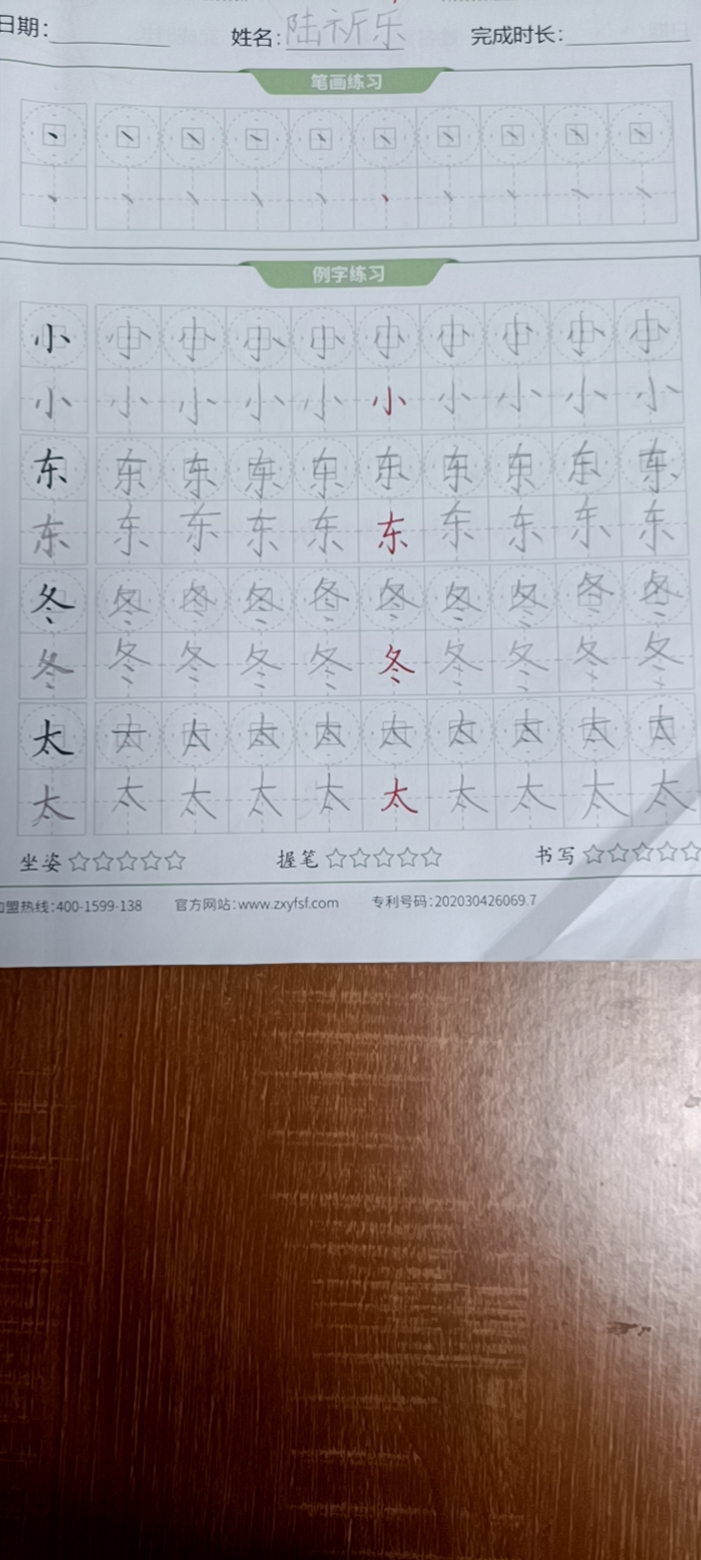 日期: 姓名: 陆祈乐 完成时长:
笔画练习
丶 丶 丶 丶 丶 丶 丶 丶 丶 丶
丶 丶 丶 丶 丶 丶 丶 丶 丶 丶
例字练习
小 小 小 小 小 小 小 小 小 小
小 小 小 小 小 小 小 小 小 小
东 东 东 东 东 东 东 东 东 东
东 东 东 东 东 东 东 东 东 东
冬 冬 冬 冬 冬 冬 冬 冬 冬 冬
冬 冬 冬 冬 冬 冬 冬 冬 冬 冬
太 太 太 太 太 太 太 太 太 太
太 太 太 太 太 太 太 太 太 太
坐姿☆☆☆☆☆ 握笔☆☆☆☆☆ 书写☆☆☆☆☆
加盟热线:400-1599-138 官方网站:www.zxyfsf.com 专利号码:202030426069.7